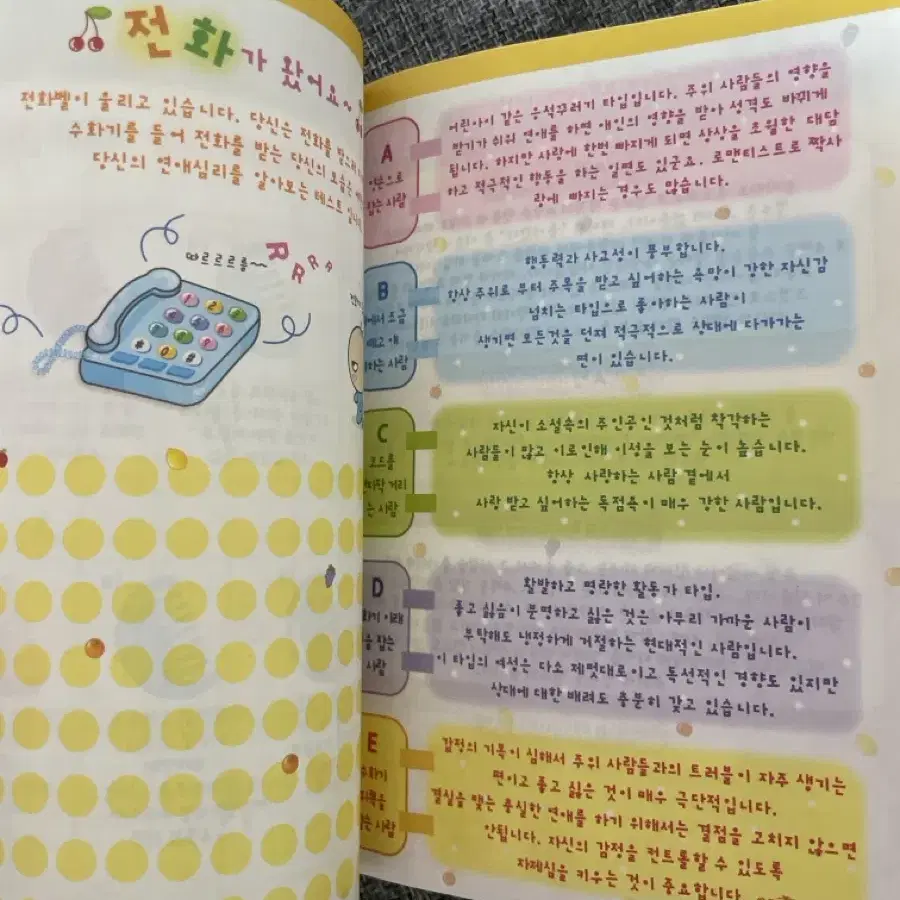 전화가 왔어요~
전화벨이 울리고 있습니다. 당신은 전화를
수화기를 들어 전화를 받는 당신의 모습은
당신의 연애심리를 알아보는 테스트 입니다
따르르르릉~~
R R R R
1 2
* 0 #
A
사람
어린아이 같은 응석꾸러기 타입입니다. 주위 사람들의 영향을
받기가 쉬워 연애를 하면 애인의 영향을 받아 성격도 바뀌게
됩니다. 하지만 사랑에 한번 빠지게 되면 상상을 초월한 대담
하고 적극적인 행동을 하는 일면도 있군요. 로맨티스트로 짝사
랑에 빠지는 경우도 많습니다.
B
에서 조금
하는 사람
행동력과 사고성이 풍부합니다.
항상 주위로 부터 주목을 받고 싶어하는 욕망이 강한 자신감
넘치는 타입으로 좋아하는 사람이
생기면 모든것을 던져 적극적으로 상대에 다가가는
면이 있습니다.
C
코드를
거리
는 사람
자신이 소설속의 주인공인 것처럼 착각하는
사람들이 많고 이로인해 이성을 보는 눈이 높습니다.
항상 사랑하는 사람 곁에서
사랑 받고 싶어하는 독점욕이 매우 강한 사람입니다.
D
화기 아래
을 잡는
사람
활발하고 명랑한 활동가 타입.
좋고 싫음이 분명하고 싫은 것은 아무리 가까운 사람이
부탁해도 냉정하게 거절하는 현대적인 사람입니다.
이 타입의 여성은 다소 제멋대로이고 독선적인 경향도 있지만
상대에 대한 배려도 충분히 갖고 있습니다.
E
수화기
는 사람
감정의 기복이 심해서 주위 사람들과의 트러블이 자주 생기는
면이고 좋고 싫은 것이 매우 극단적입니다.
결실을 맺는 충실한 연애를 하기 위해서는 결점을 고치지 않으면
안됩니다. 자신의 감정을 컨트롤할 수 있도록
자제심을 키우는 것이 중요합니다.